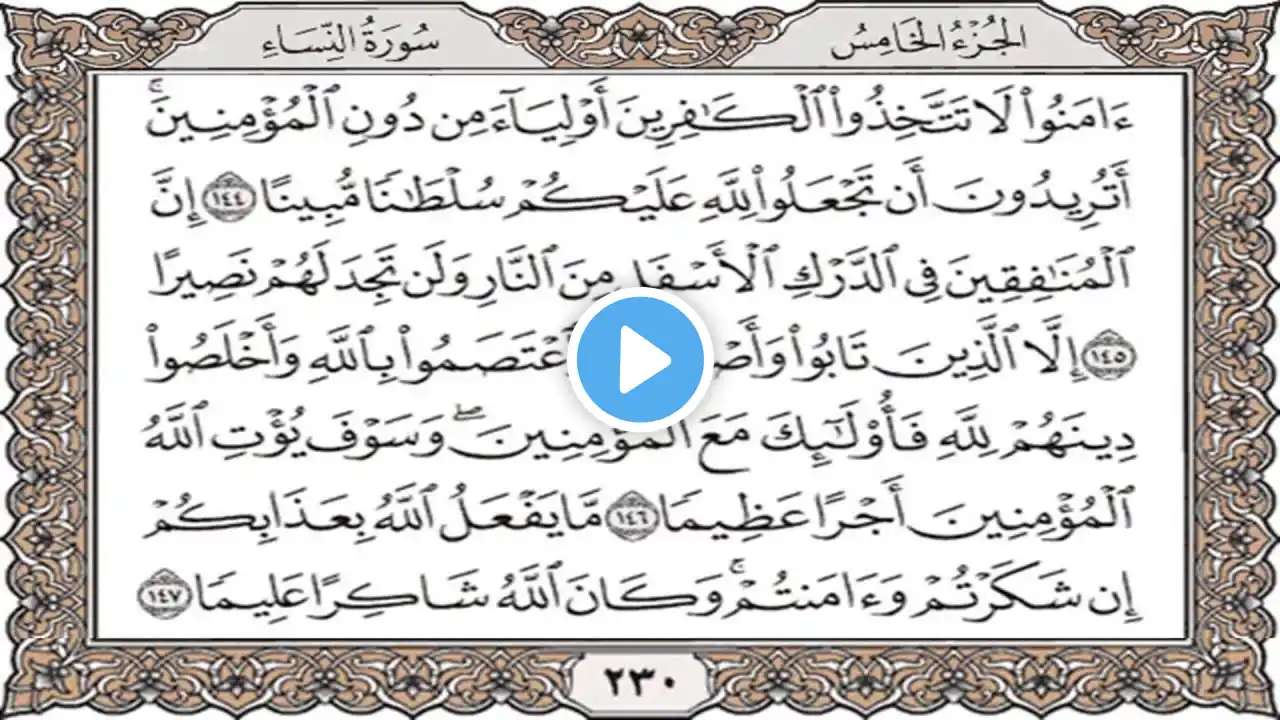 الجُزْءُ الخَامِسُ
سُورَةُ النِّسَاءِ
ءَامَنُوا۟ لَا تَتَّخِذُوا۟ ٱلْكَـٰفِرِينَ أَوْلِيَآءَ مِن دُونِ ٱلْمُؤْمِنِينَ ۚ
أَتُرِيدُونَ أَن تَجْعَلُوا۟ لِلَّهِ عَلَيْكُمْ سُلْطَـٰنًا مُّبِينًا ١٤٤ إِنَّ
ٱلْمُنَـٰفِقِينَ فِى ٱلدَّرْكِ مِنَ ٱلنَّارِ وَلَن تَجِدَ لَهُمْ نَصِيرًا
١٤٥ إِلَّا ٱلَّذِينَ تَابُوا۟ بِٱللَّهِ وَأَخْلَصُوا۟
دِينَهُمْ لِلَّهِ فَأُو۟لَـٰٓئِكَ مَعَ ٱلْمُؤْمِنِينَ ۖ وَسَوْفَ يُؤْتِ ٱللَّهُ
ٱلْمُؤْمِنِينَ أَجْرًا عَظِيمًا ١٤٦ مَّا يَفْعَلُ ٱللَّهُ بِعَذَابِكُمْ
إِن شَكَرْتُمْ وَءَامَنتُمْ ۚ وَكَانَ ٱللَّهُ شَاكِرًا عَلِيمًا ١٤٧
٢٣٠